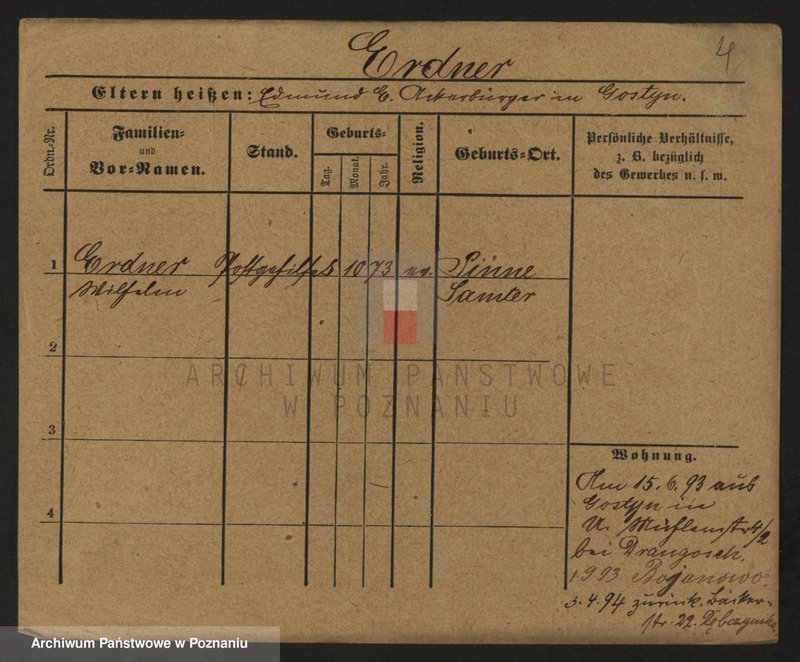 4
Erdner
Eltern heißen: Edmund E. Ackerbürger in Gostyn.
Ordn.-Nr.
Familien- und Vor-Namen.
Stand.
Geburts-
Tag.
Monat.
Jahr.
Religion.
Geburts-Ort.
Persönliche Verhältnisse,
z. B. bezüglich
des Gewerbes u. s. w.
1 Erdner Postgehilfe 5 10 73 ev. Pinne
Wilhelm Samter
2
3
4
Wohnung.
Am 15.6.93 aus
Gostyn in
U. Mühlenstr 4/2
bei Drangosch.
1.9.93 Bojanowo.
3.4.94 zurück. Bäcker-
str. 22.
ARCHIWUM PAŃSTWOWE
W POZNANIU
Archiwum Państwowe w Poznaniu